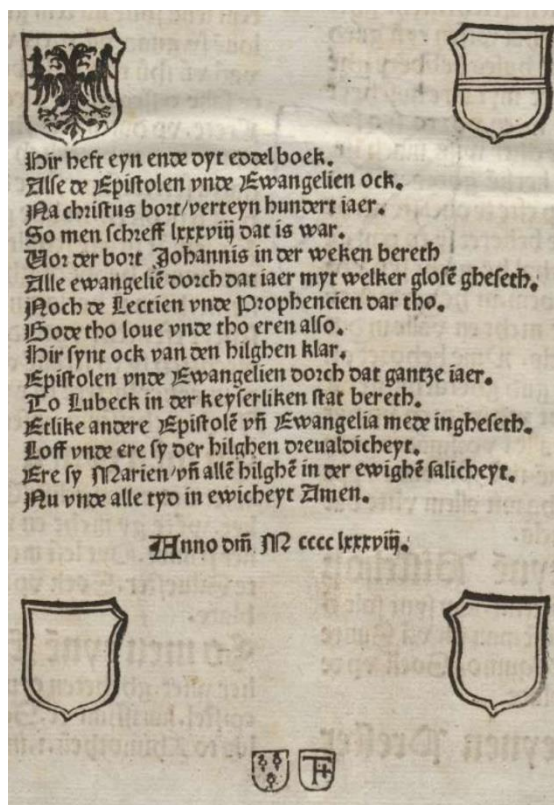 Hir heft eyn ende dyt eddel boek.
Alse de Epistolen vnde Ewangelien ock.
Na christus bort/verteyn hundert iaer.
So men schreff lxxxviij dat is war.
Vor der bort Johannis in der weken bereth
Alle ewangeliē dorch dat iaer myt welker glosē gheseth.
Noch de Lectien vnde Prophencien dar tho.
Gode tho loue vnde tho eren also.
Hir synt ock van den hilghen klar.
Epistolen vnde Ewangelien dorch dat gantze iaer.
To Lubeck in der keyserliken stat bereth.
Etlike andere Epistolē vn̄ Ewangelia mede ingheseth.
Loff vnde ere sy der hilghen dreualdicheyt.
Ere sy Marien/vn̄ allē hilghē in der ewighē salicheyt.
Nu vnde alle tyd in ewicheyt Amen.
Anno dm̄ M cccc lxxxviij.